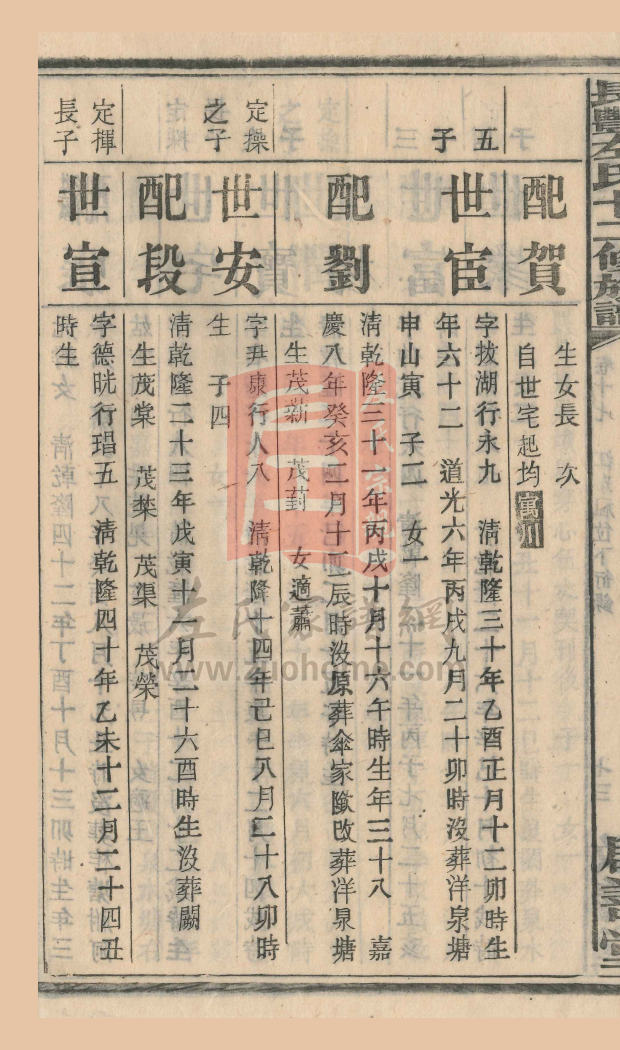 長豐左氏十二修族譜
五
子
定操
之子
定揮
長子
配賀
世宦
配劉
世安
配段
世宣
生女長 次
自世宅起均寓川
字拔湖行永九 清乾隆三十年乙酉正月十二卯時生
年六十二 道光六年丙戌九月二十卯時沒葬洋泉塘
申山寅 子二 女一
清乾隆三十一年丙戌十月十六午時生年三十八 嘉
慶八年癸亥二月十四辰時沒原葬傘家隴改葬洋泉塘
生茂薪 茂葑 女適蕭
字尹康行人八 清乾隆十四年己巳八月二十八卯時
生 子四
清乾隆二十三年戊寅十一月二十六酉時生沒葬闕
生茂棠 茂棻 茂渠 茂榮
字德晄行瑁五 清乾隆四十年乙未十二月二十四丑
時生
左氏家譜網
www.zuohome.com